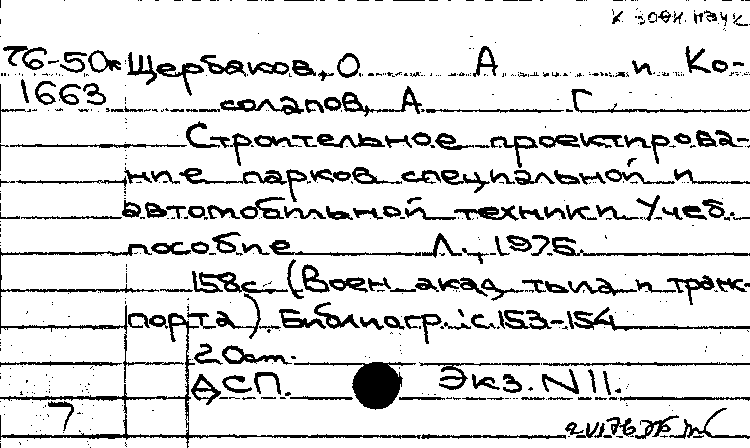 к воен. наук
76-50к Щербаков, О А и Ко-
1663 солапов, А Г.
Строительное проектирова-
ние парков специальной и
автомобильной техники. Учеб.
пособие Л., 1975.
158с. (Воен. акад. тыла и транс-
порта). Библиогр.: с. 153-154
20см.
ДСП. Экз. N 11.
7